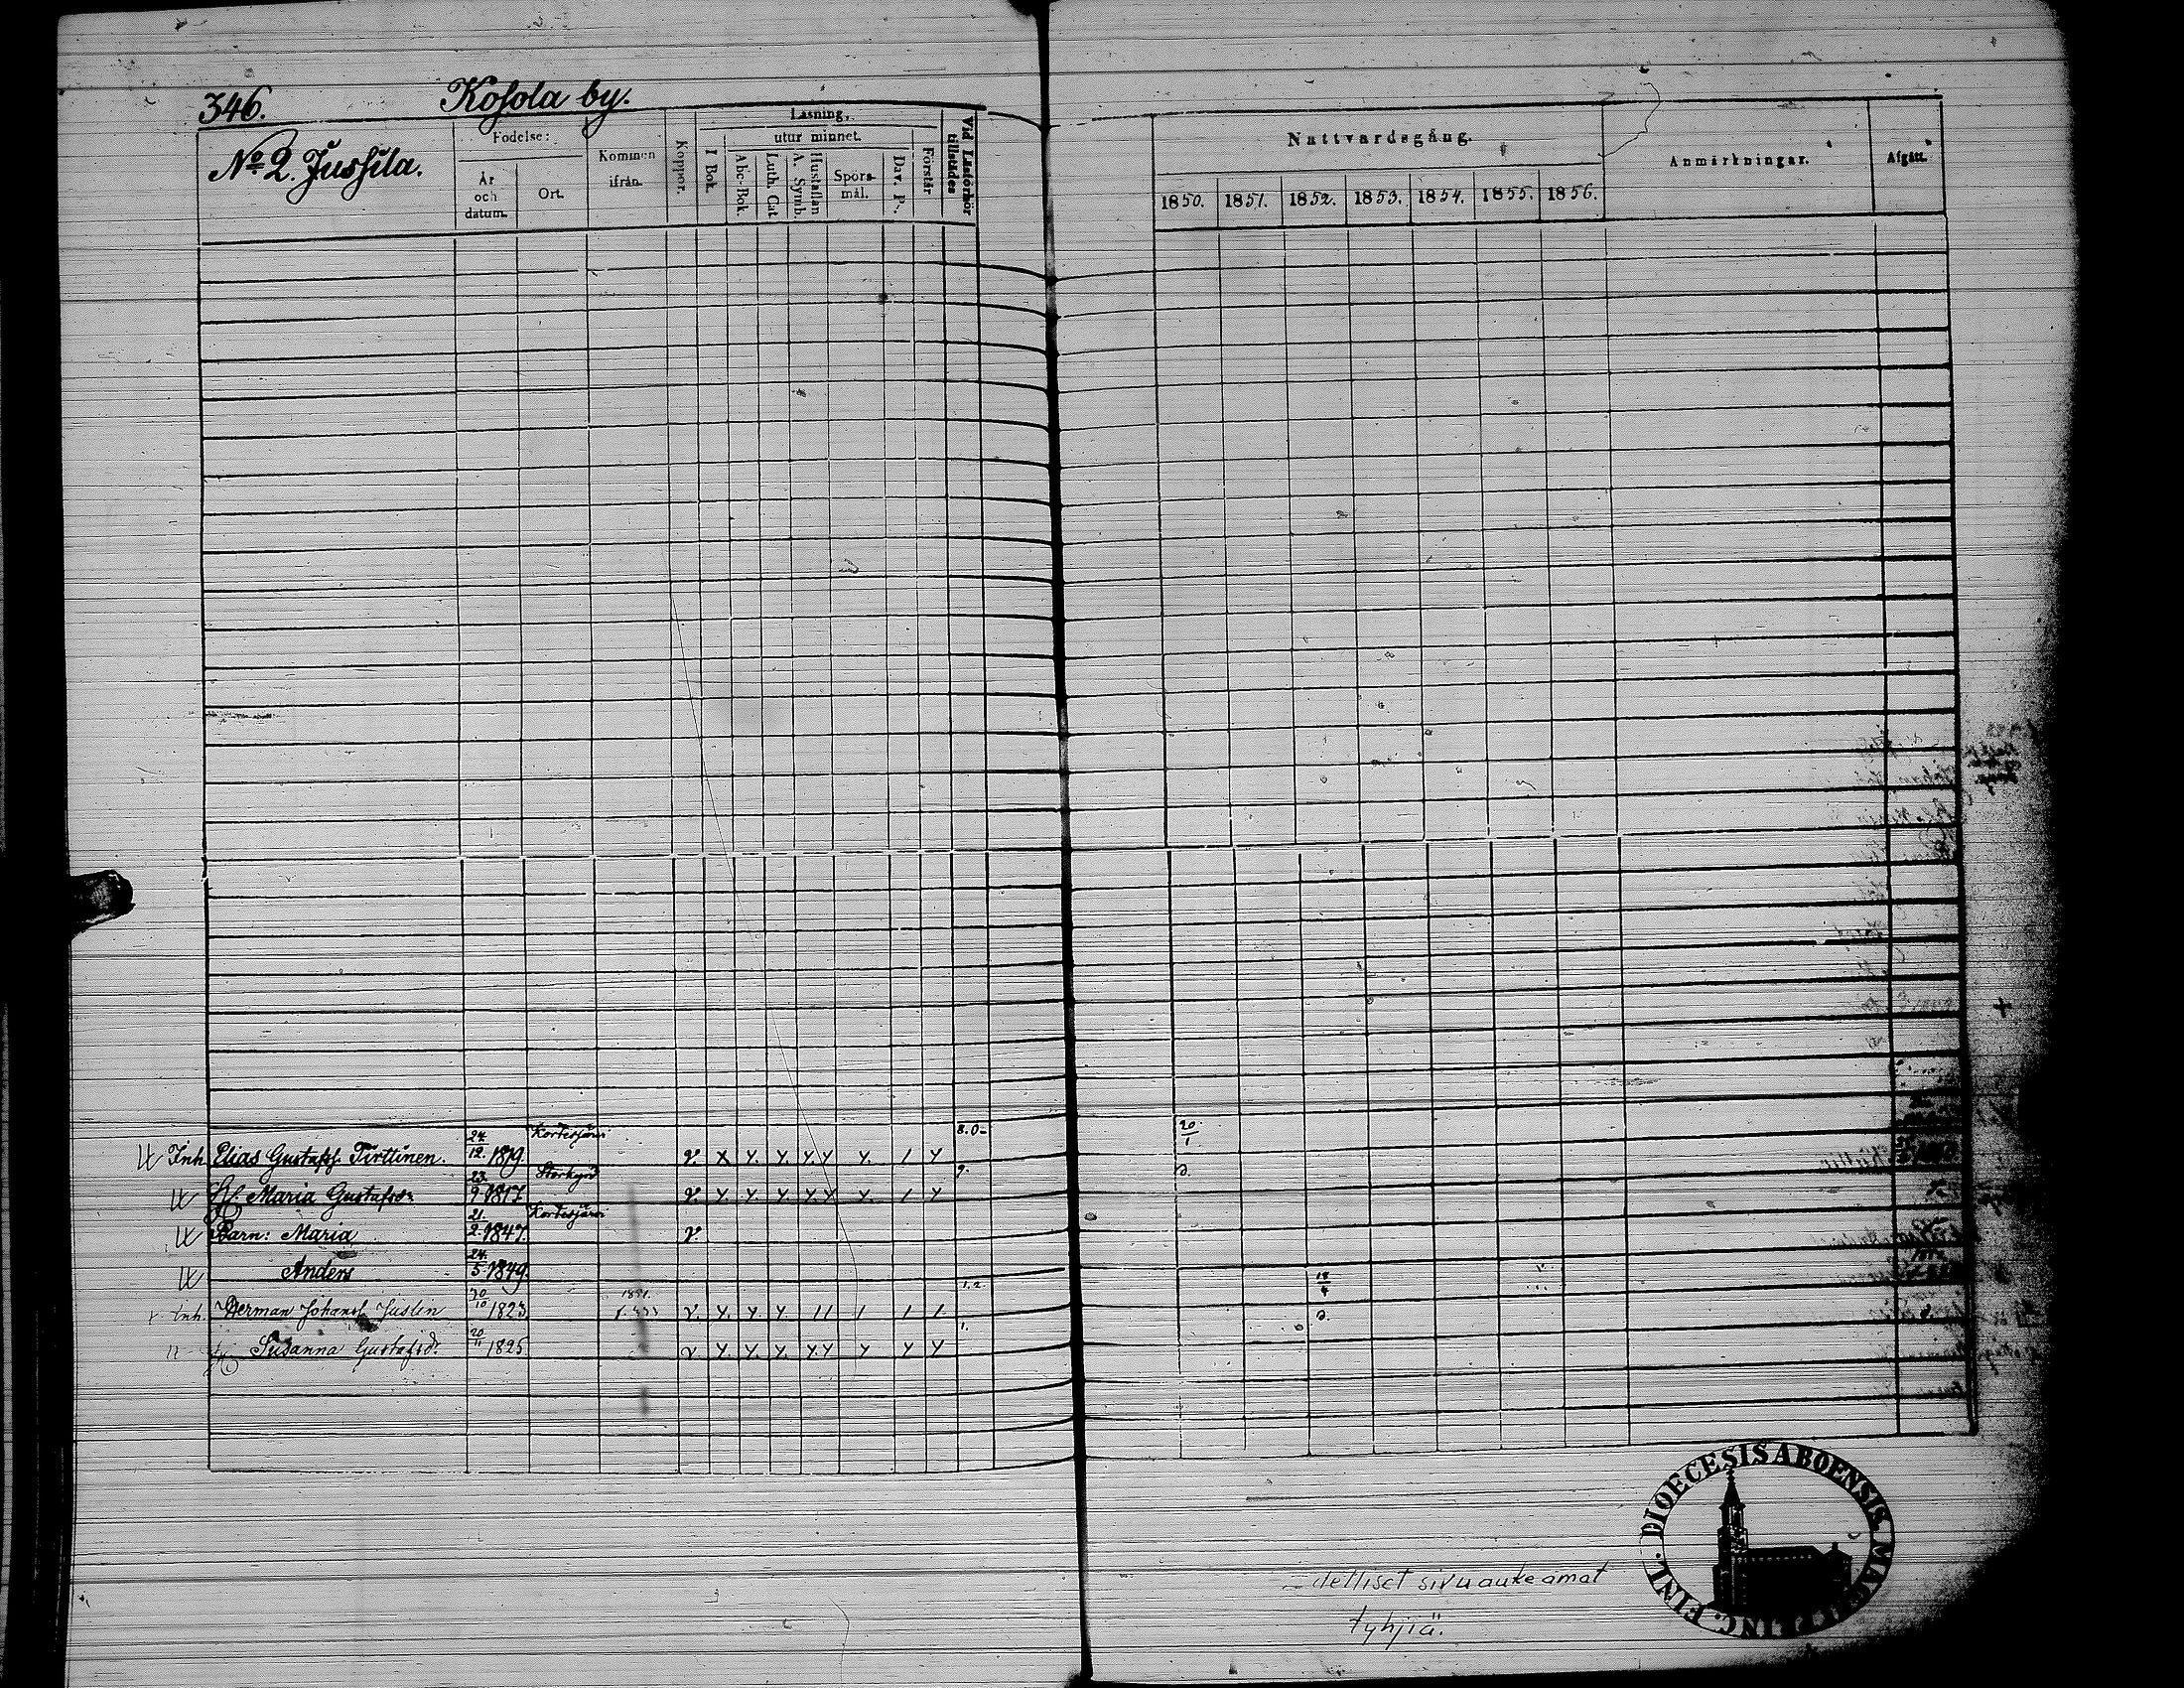 346. Kosola by.
No 2. Jussila.
Födelse:
År och datum.
Ort.
Kommen ifrån.
Koppor.
Läsning.
I Bok.
utur minnet.
Abc-Bok.
Luth. Cat
A. Symb.
Hustaflan
Spörsmål.
Dav. P.
Förstår
Vid Läsförhör tillstädes
Nattvardsgång.
1850. 1851. 1852. 1853. 1854. 1855. 1856.
Anmärkningar.
Afgått.
Inh Elias Gustafss Tirttinen. 24/12 1819 Kortesjärvi v. x y. y. y y y. / y 8.0- 20/1
H. Maria Gustafsdr 23/9 1817 Storkyrö v. y. y. y. y. y y. / y 9. D.
Barn: Maria 21/2 1847. Kortesjärvi v
Anders 24/5 1849.
Inh. Herman Johanss Juslin 30/10 1823 1851. v. y. y. y. / / / / / 1.2. 18/4
H Susanna Gustafsdr. 20/11 1825 v y. y. y. y y y y y 1. D.
sivuaukeamat
tyhjiä.
DIOECESIS ABOENSIS. FINL.